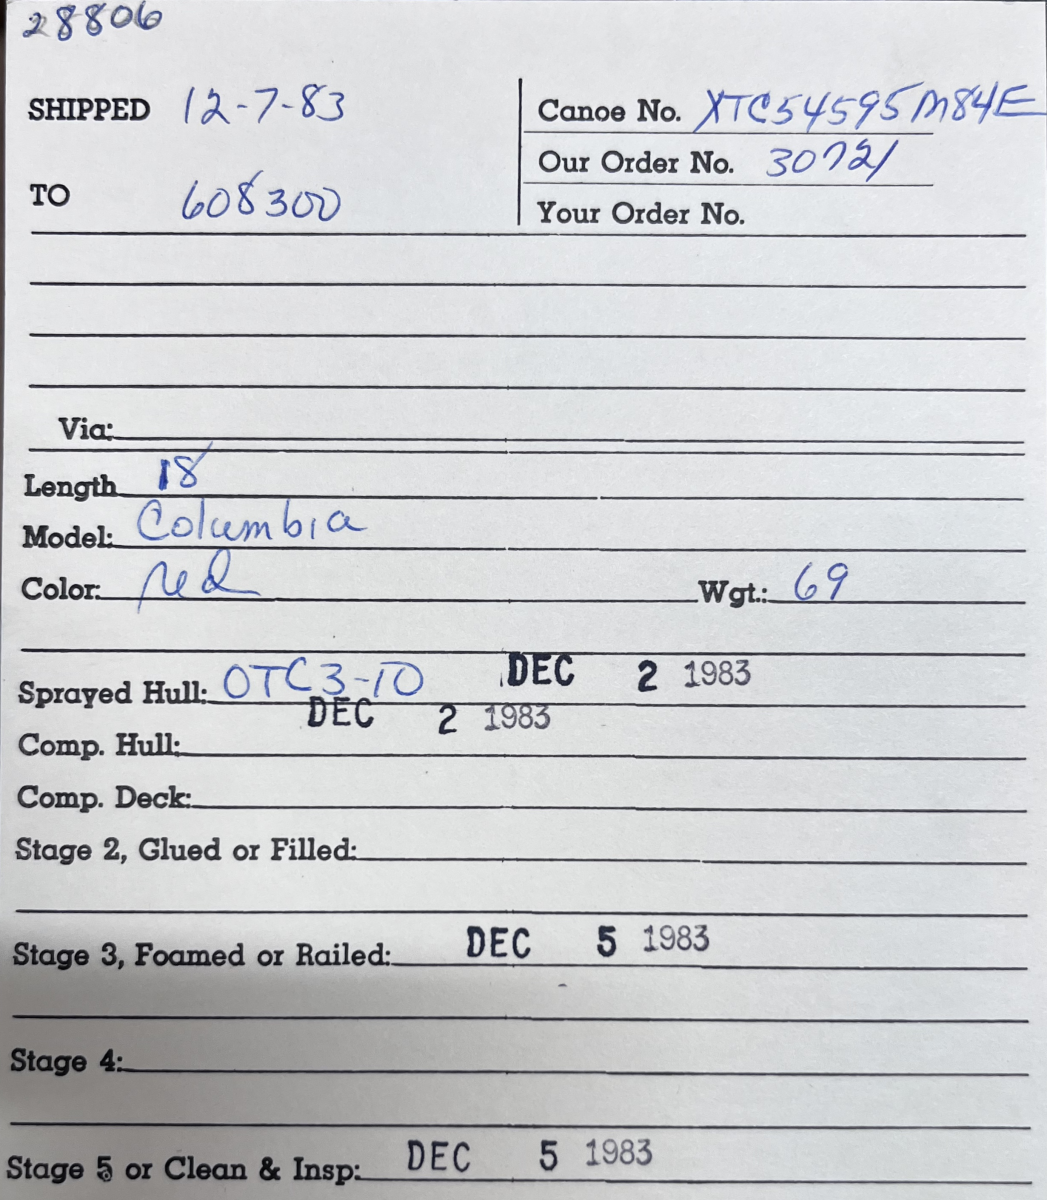 28806
SHIPPED 12-7-83
Canoe No. XTC54595M84E
Our Order No. 30721
TO 608300
Your Order No.
Via:
Length 18
Model: Columbia
Color: red Wgt.: 69
Sprayed Hull: OTC3-10 DEC 2 1983
DEC 2 1983
Comp. Hull:
Comp. Deck:
Stage 2, Glued or Filled:
Stage 3, Foamed or Railed: DEC 5 1983
Stage 4:
Stage 5 or Clean & Insp: DEC 5 1983